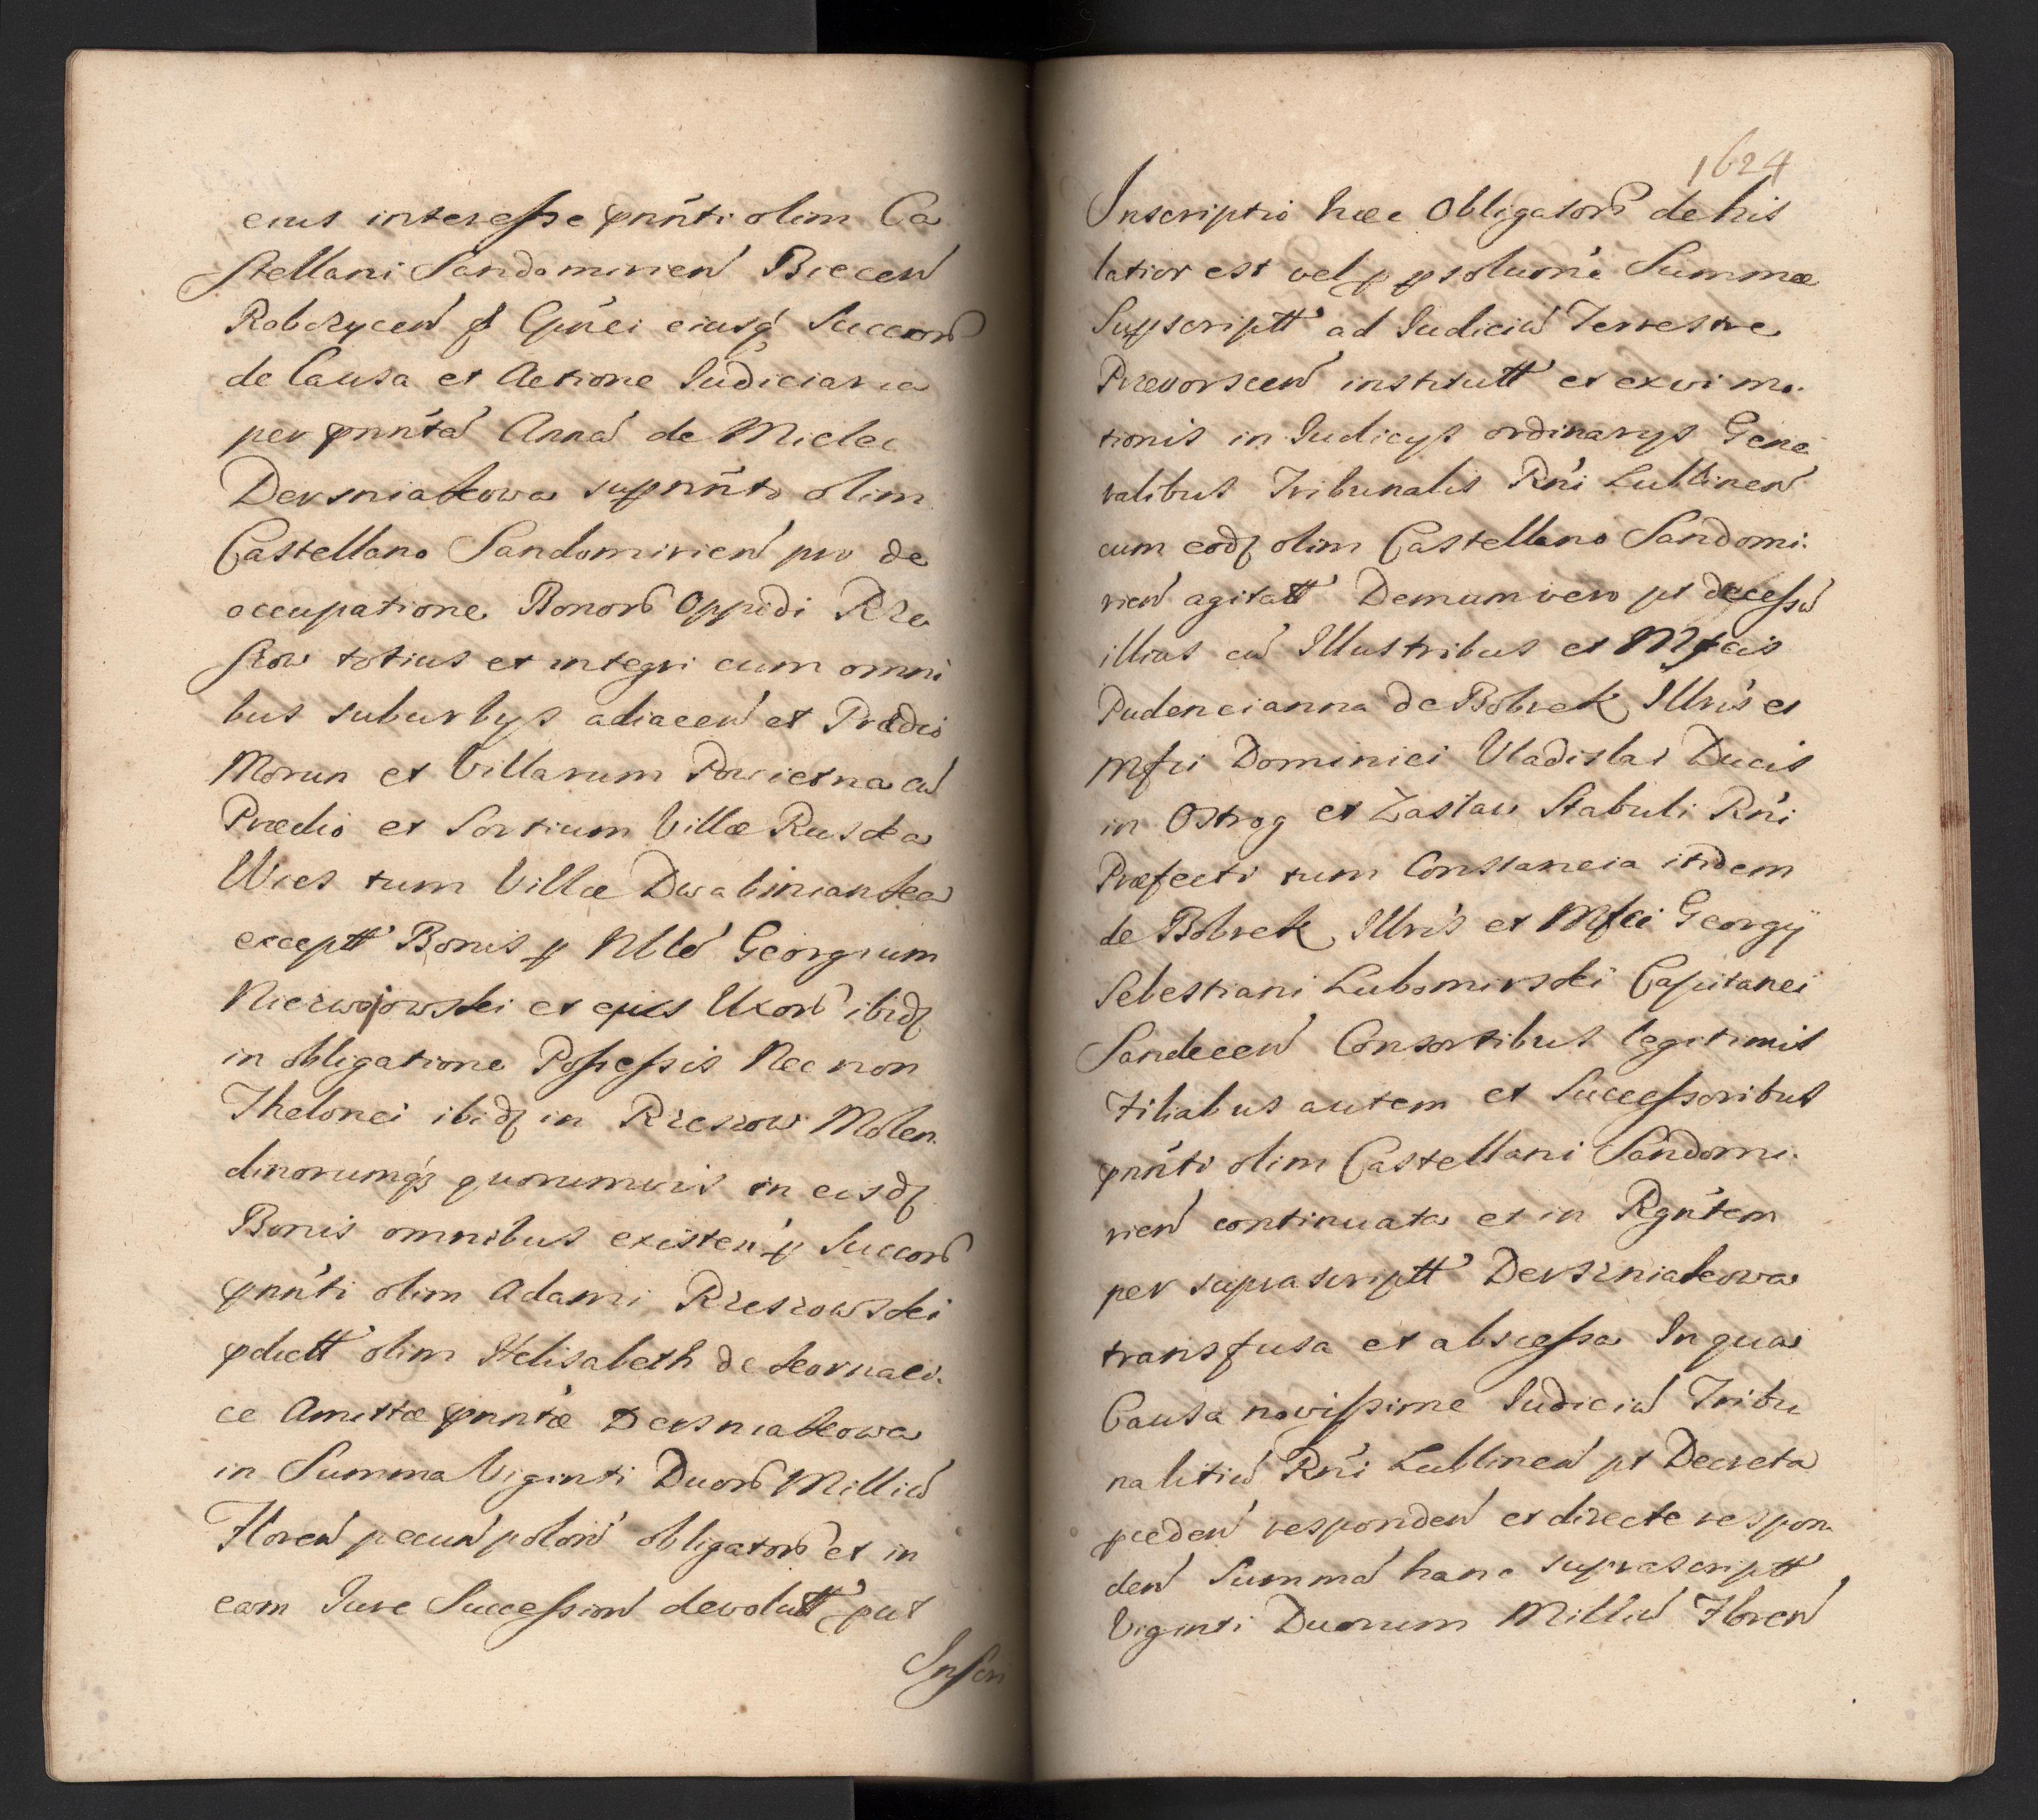 eius interesse pnñti olim Ca
stellani Sandomirien̄ Biecen̄
Robczycen̄ Cpñei eiusq́ Succorū
de Causa et Actione Iudiciaria
per pnñtā Annā de Mielec
Dersniakowa supnñto olim
Castellano Sandomirien̄ pro de
occupatione Bonorū Oppidi Rze
szow totius et integri cum omni
bus suburbijs adiacen̄ et Prædio
Morun et Villarum Powietna cū
Prædio et Sortium Villæ Ruska
Wies tum Villæ Dwabinianka
exceptt̃ Bonis p Nblē Georgium
Nierwojowski et ejus Uxorē ibidq
in obligatione Possessis Nec non
Thelonei ibidq in Rzeszow Molen
dinorumqꝫ quorumvis in eisdq
Bonis omnibus existen̄ p Succorē
pnñti olim Adami Rzeszowski
pdictt̃ olim Helisabeth de Kornali
ce Amittæ pnñtæ Dersniakowa
in Summa Viginti Duorū Milliū
Floren̄ pecun̄ polon̄ obligatorū et in
eam Iure Succession̄ devolutt̃ put
Inscri
1624
Inscriptio hæc Obligatorū de his
latior est vel p psolun̄e Summæ
Supscriptt̃ ad Iudiciū Terrestre
Przevorscen̄ institutt̃ et ex vi mo
tionis in Iudicijs ordinarijs Gene
ralibus Tribunalis Rñi Lublinen̄
cum eodq olim Castellano Sandomi
rien̄ agitatt̃ Demum vero pt decessū
illius cū Illustribus et Mfcis
Pudencianna de Bobrek Illris et
Mfci Dominici Vladislai Ducis
in Ostrog et Zaslaw Stabuli Rñi
Præfecti tum Constancia itidem
de Bobrek Illris et Mfci Georgÿ
Sebestiani Lubomirski Capitanei
Sandecen̄ Consortibus legitimis
Filiabus autem et Successoribus
pnñti olim Castellani Sandomi
rien̄ continuata et in Rgñtem
per suprascriptt̃ Derszniakowa
transfusa et abscessa In qua
Causa novissime Iudiciū Tribu
nalitiū Rñi Lublinen̄ pt Decreta
pceden̄ responden̄ et directe respon
den̄ Summā hanc suprascriptt̃
Viginti Duorum Milliū Floren̄